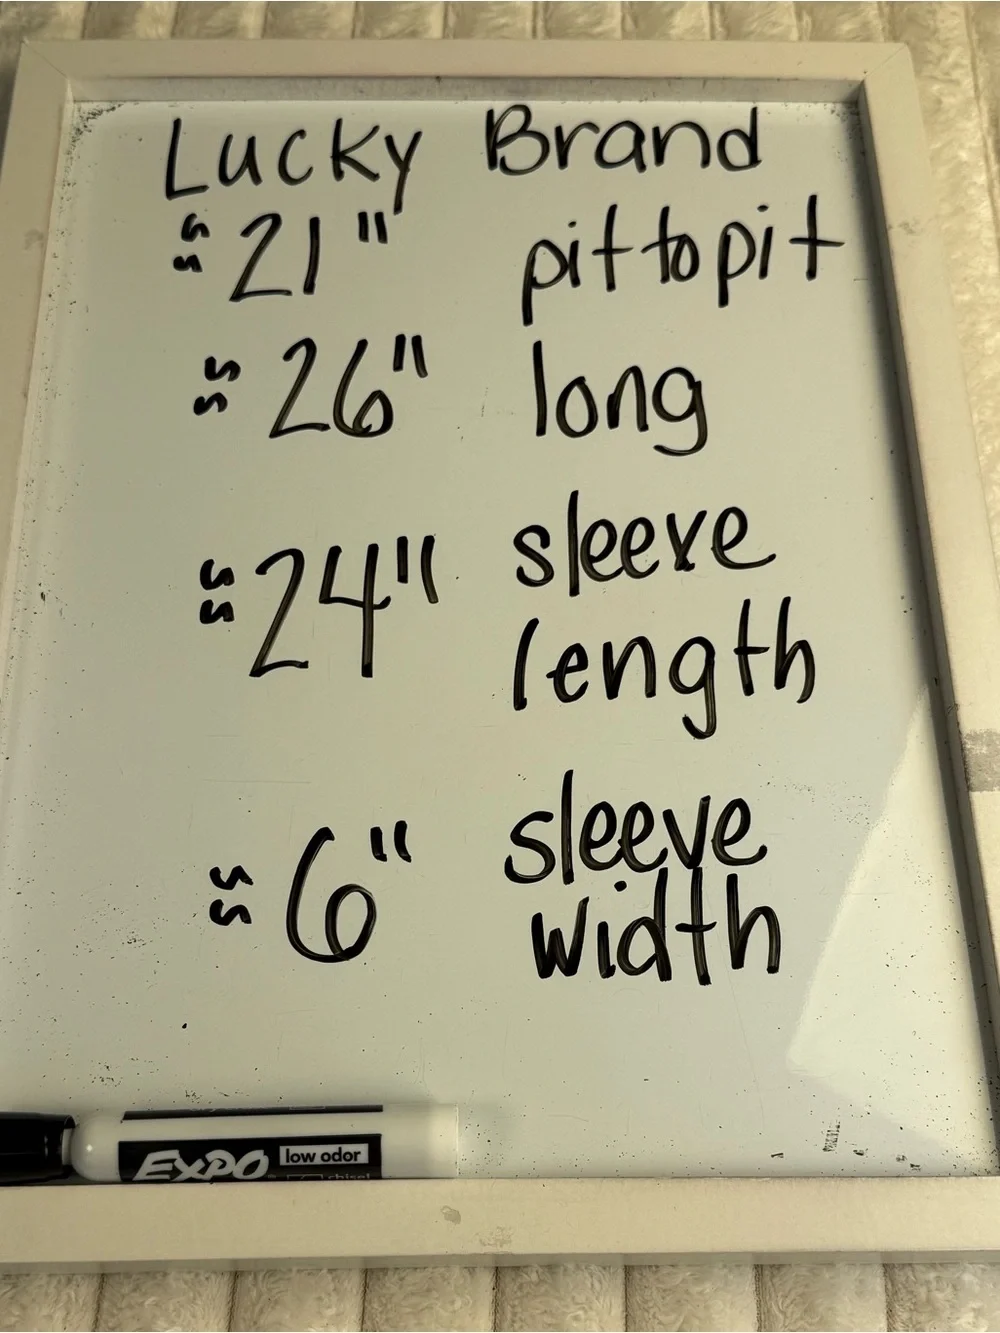 Lucky Brand
≈ 21" pit to pit
≈ 26" long
≈ 24" sleeve
length
≈ 6" sleeve
width
EXPO low odor
chisel